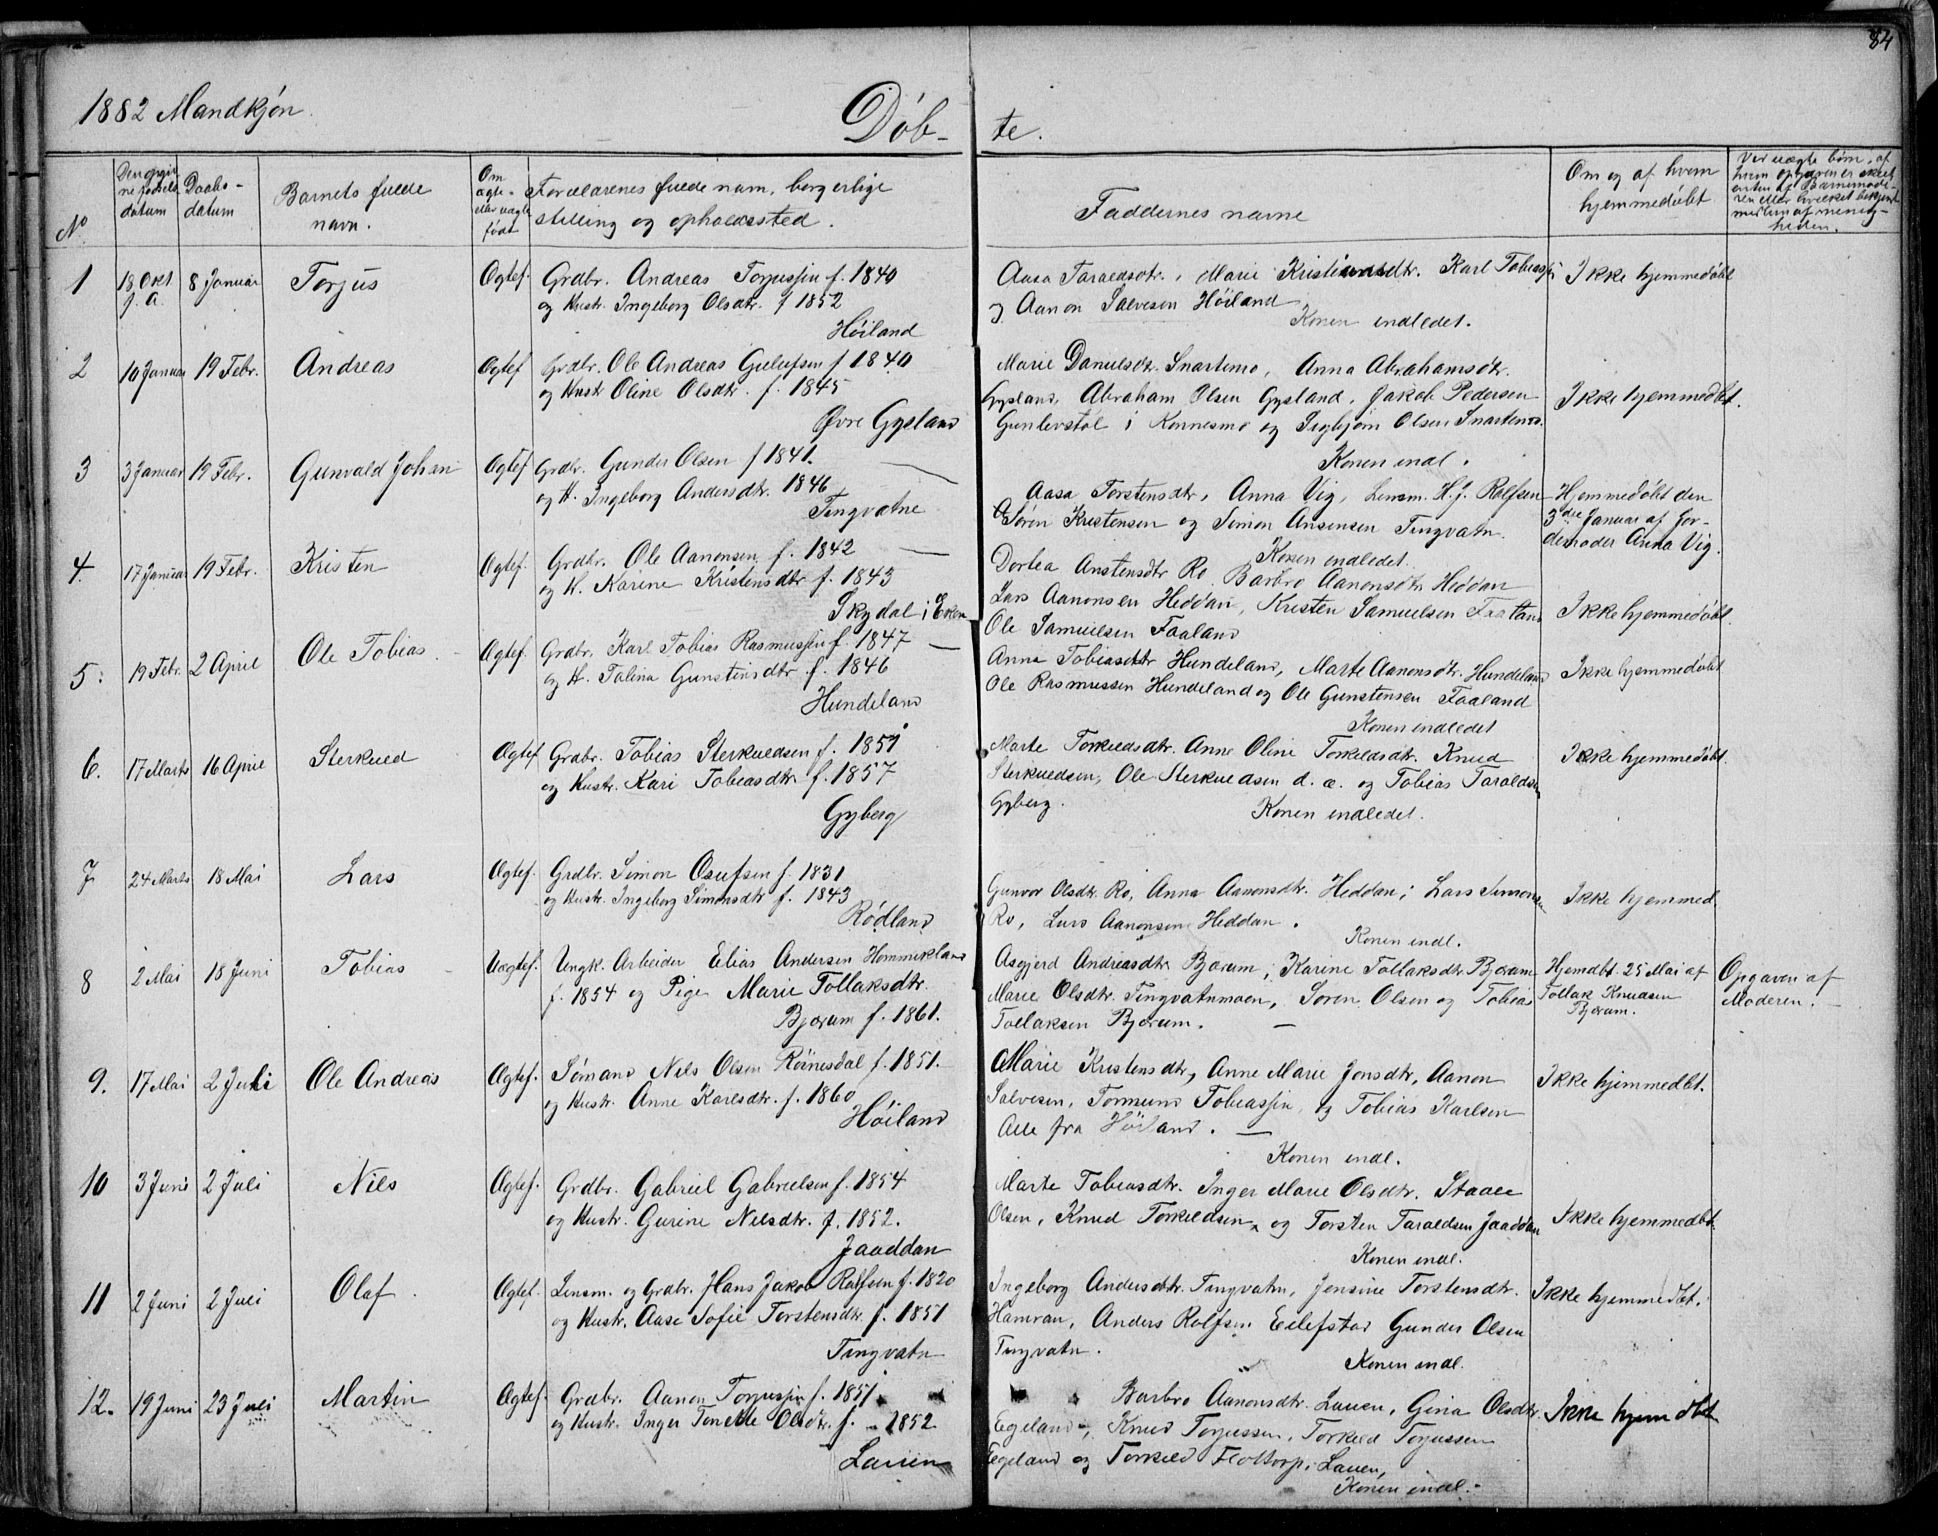 84
1882 Mandkjøn.
Døb- te.
No
Den opgiv
ne fødsels
datum
Daabs-
datum
Barnets fulde
navn.
Om
ægte-
eller uægte
født
Forældrenes fulde navn, borgerlige
stilling og opholdssted.
Faddernes navne
Om og af hvem
hjemmedøbt
Ved uægte børn, af
hvem opgaven er skeet
enten af Barnemode-
ren eller hvilket bekjendt
medlem af menig-
heden.
1 18 Okt 8 Januar Torjus Ægtef. Grdbr. Andreas Torjussen f. 1840
f. A.
og Hustr. Ingeborg Olsdtr. f 1852
Høiland
Aasa Taraldsdtr., Marie Kristiansdtr. Karl Tobiassen
og Aanon Salvesen Høiland
Konen indledet.
Ikke hjemmedøbt
2 10 Januar 19 Febr. Andreas Ægtef Grdbr. Ole Andreas Gulufsen f 1840
og Hustr Oline Olsdtr. f. 1845
Øvre Gysland
Marie Danielsdtr. Snartemo, Anna Abrahamsdtr.
Gysland, Abraham Olsen Gysland, Jakob Pedersen
Gunlevstøl i Konnesmo og Sigbjørn Olsen Snartemo.
Konen indl.
Ikke hjemmedbt.
3 3 Januar 19 Febr. Gunvald Johan Ægtef Grdbr. Gunder Olsen f 1841.
og H. Ingeborg Andersdtr. 1846
Tingvatne
Aasa Torstensdtr, Anna Vig, Lensm. H. J. Rolfsen
Søren Kristensen og Simon Ansensen Tingvatn.
Konen indledet.
Hjemmedøbt den
3die Januar af Jor-
demoder Anna Vig.
4. 17 Januar 19 Febr. Kristen Ægtef. Grdbr. Ole Aanonsen f. 1842
og H. Karine Kristensdtr f. 1843
Skydal i Eken
Dortea Anstensdtr Ro, Barbro Aanonsdtr Heddan
Lars Aanonsen Heddan, Kristen Samuelsen Faaland
Ole Samuelsen Faaland
Ikke hjemmedøbt.
5. 19 Febr. 2 April Ole Tobias Ægtef. Grdbr. Karl Tobias Rasmussen f. 1847
og H. Talina Gunstensdtr f. 1846
Hundeland
Anna Tobiasdtr Hundeland, Marte Aanonsdtr. Hundeland
Ole Rasmussen Hundeland og Ole Gunstensen Faaland
Konen indledet
Ikke hjemmedøbt
6. 17 Marts 16 April Sterkued Ægtef Grdbr. Tobias Sterkuedsen f. 1851
og Hustr. Kari Tobiasdtr. f. 1857
Gyberg
Marte Torkildsdtr. Anne Oline Torkildsdtr. Knud
Sterkuedsen, Ole Sterkuedsen d. æ. og Tobias Taraldsen
Gyberg.
Konen indledet.
Ikke hjemmedøbt.
7 24 Marts 18 Mai Lars Ægtef. Grdbr. Simon Osufsen f. 1831
og Hustr. Ingeborg Simonsdtr f. 1843
Rødland
Gunvor Olsdtr. Ro, Anna Aanonsdtr. Heddan; Lars Simonsen
Ro, Lars Aanonsen Heddan.
Konen indl.
Ikke hjemmed.
8 2 Mai 18 Juni Tobias Uægtef. Ungk. Arbeider Elias Andersen Hommeklans
f. 1854 og Pige Marie Tollaksdtr.
Bjørum f. 1861.
Asgjerd Andreasdtr Bjørum, Karine Tollaksdtr Bjørum
Marie Olsdtr. Tingvatnmoen, Søren Olsen og Tobias
Tollaksen Bjørum.
Hjemdbt. 25 Mai af
Tollak Knudsen
Bjørum.
Opgaven af
Moderen.
9. 17 Mai 2 Juli Ole Andreas Ægtef. Sømand Nils Olsen Røinesdal f. 1851.
og Hustr. Anne Karlsdtr. f. 1860
Høiland
Marie Kristensdtr, Anne Marie Jonsdtr, Aanon
Salvesen, Tormund Tobiassen og Tobias Karlsen
Alle fra Høiland.
Konen indl.
Ikke hjemmedbt.
10 3 Juni 2 Juli Nils Ægtef. Grdbr. Gabriel Gabrielsen f. 1854
og Hustr. Gurine Nilsdtr. f. 1852.
Jaaddan
Marte Tobiasdtr. Inger Marie Olsdtr. Staale
Olsen, Knud Torkildsen, og Torsten Taraldsen Jaaddan
Konen indl.
Ikke hjemmedbt.
11 2 Juni 2 Juli Olaf Ægtef. Lensm. og Grdbr. Hans Jakob Rolfsen f. 1820
og Hustr. Aase Sofie Torstensdtr. f. 1851
Tingvatn
Ingeborg Andersdtr. Tingvatn, Jensine Torstensdtr.
Hamran, Anders Rolfsen Eilefstad Gunder Olsen
Tingvatn.
Konen indl.
Ikke hjemmedbt.
12. 19 Juni 23 Juli Martin Ægtef. Grdbr. Aanon Torjussen f. 1851.
og Hustr. Inger Tonette Olsdtr. f. 1852
Lauen
Barbro Aanonsdtr. Lauen, Gina Olsdtr.
Egeland, Knud Torjussen, Torkild Torjussen
Egeland og Torkild Flottorp, Lauen,
Konen indl.
Ikke hjemdbt